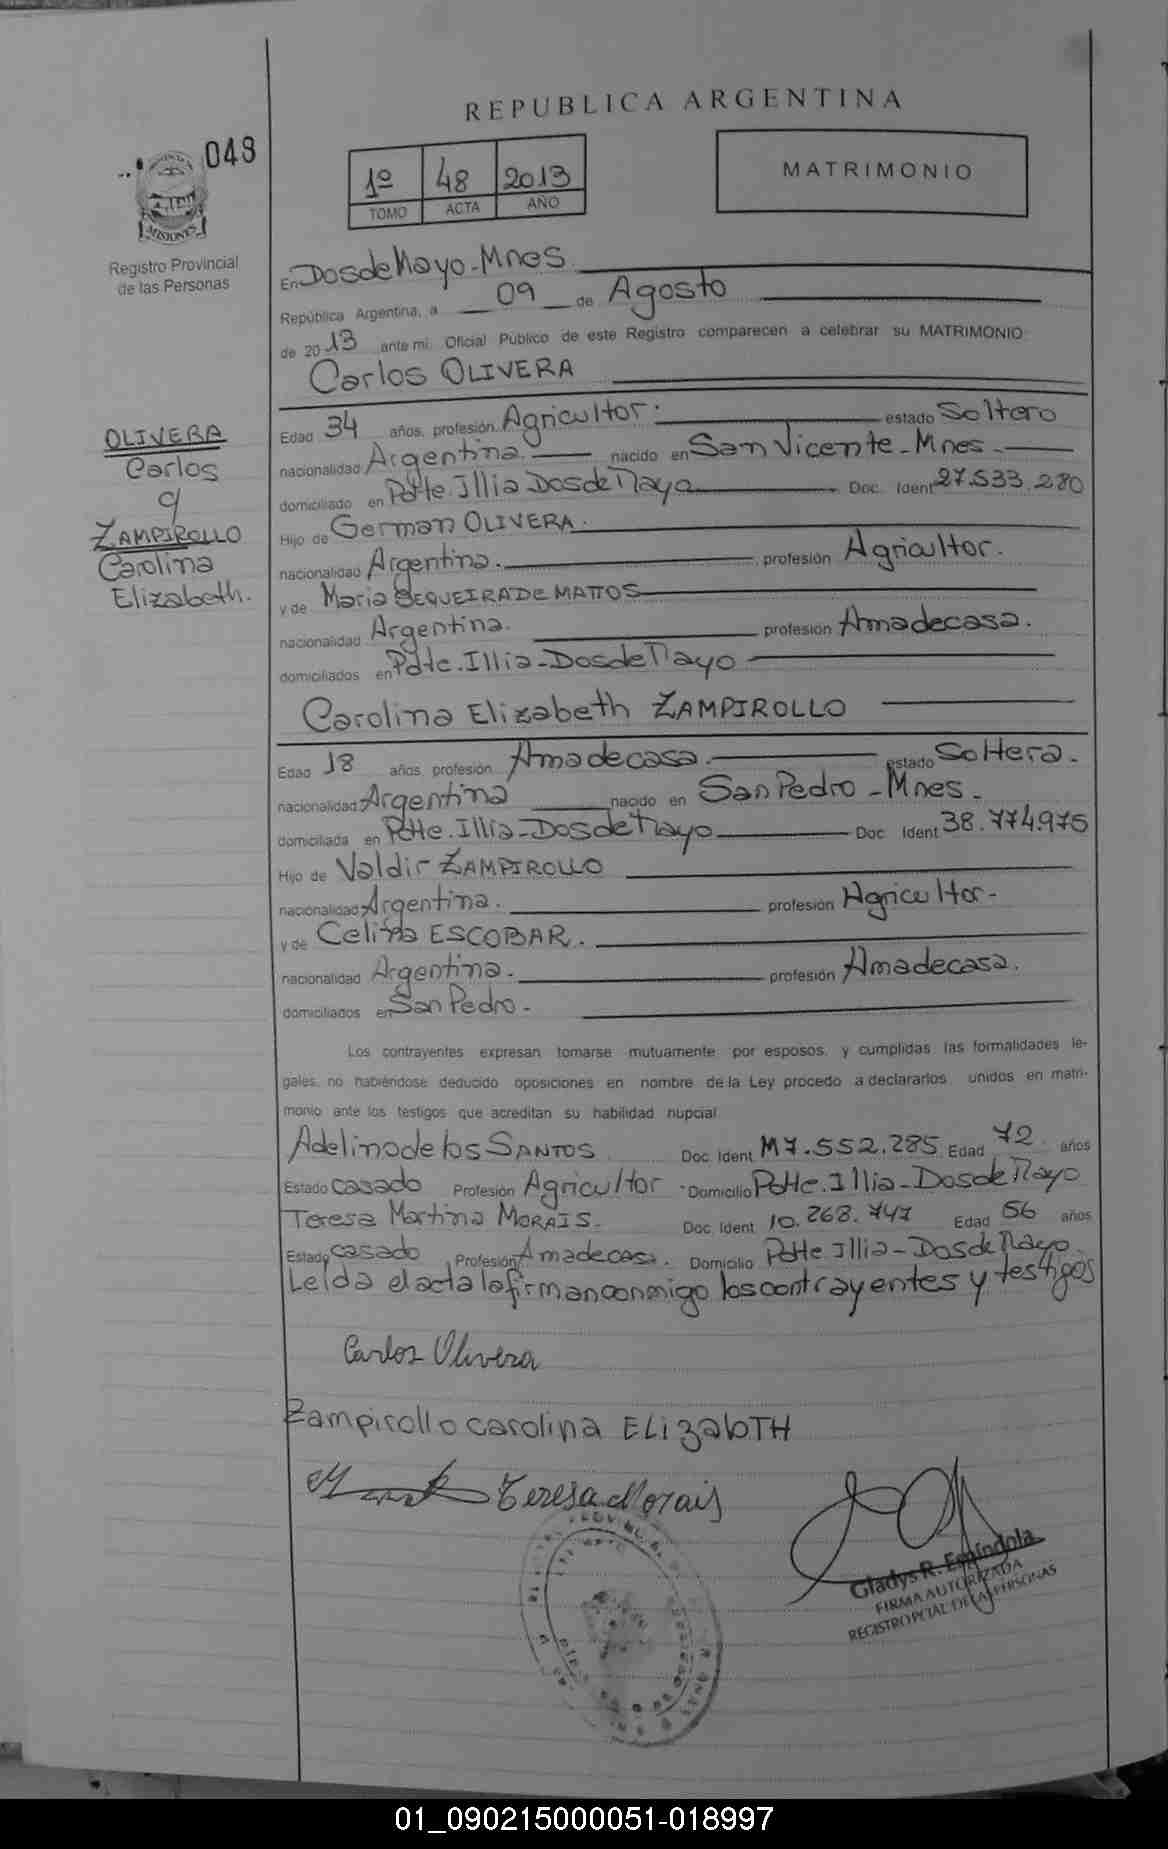 REPUBLICA ARGENTINA
048
1º 48 2013
TOMO ACTA AÑO
MATRIMONIO
MISIONES
Registro Provincial
de las Personas
En Dos de Mayo - Mnes
República Argentina, a 09 de Agosto
de 2013 ante mi, Oficial Público de este Registro comparecen a celebrar su MATRIMONIO
Carlos OLIVERA
OLIVERA
Carlos
c/
ZAMPIROLLO
Carolina
Elizabeth.
Edad 34 años, profesión Agricultor. estado Soltero
nacionalidad Argentina. nacido en San Vicente - Mnes -
domiciliado en Pdte. Illia Dos de Mayo Doc. Ident 27.533.280
Hijo de German OLIVERA.
nacionalidad Argentina. profesión Agricultor.
y de Maria SEQUEIRA DE MATTOS
nacionalidad Argentina. profesión Ama de casa.
domiciliados en Pdte. Illia - Dos de Mayo
Carolina Elizabeth ZAMPIROLLO
Edad 18 años, profesión Ama de casa. estado Soltera.
nacionalidad Argentina nacido en San Pedro - Mnes -
domiciliada en Pdte. Illia - Dos de Mayo Doc. Ident 38.774.975
Hijo de Valdir ZAMPIROLLO
nacionalidad Argentina. profesión Agricultor -
y de Celina ESCOBAR.
nacionalidad Argentina. profesión Ama de casa.
domiciliados en San Pedro -
Los contrayentes expresan tomarse mutuamente por esposos, y cumplidas las formalidades le-
gales, no habiéndose deducido oposiciones en nombre de la Ley procedo a declararlos unidos en matri-
monio ante los testigos que acreditan su habilidad nupcial
Adelino de los SANTOS Doc. Ident M7.552.285 Edad 72 años
Estado casado Profesión Agricultor Domicilio Pdte. Illia - Dos de Mayo
Teresa Martina MORAIS. Doc. Ident 10.268.747 Edad 56 años
Estado casado Profesión Ama de casa. Domicilio Pdte Illia - Dos de Mayo
Leida el acta la firman conmigo los contrayentes y testigos
Carlos Olivera
Zampirollo carolina ELizabTH
Teresa Morais
Gladys R. Espíndola
FIRMA AUTORIZADA
REGISTRO PCIAL. DE LAS PERSONAS
01_090215000051-018997